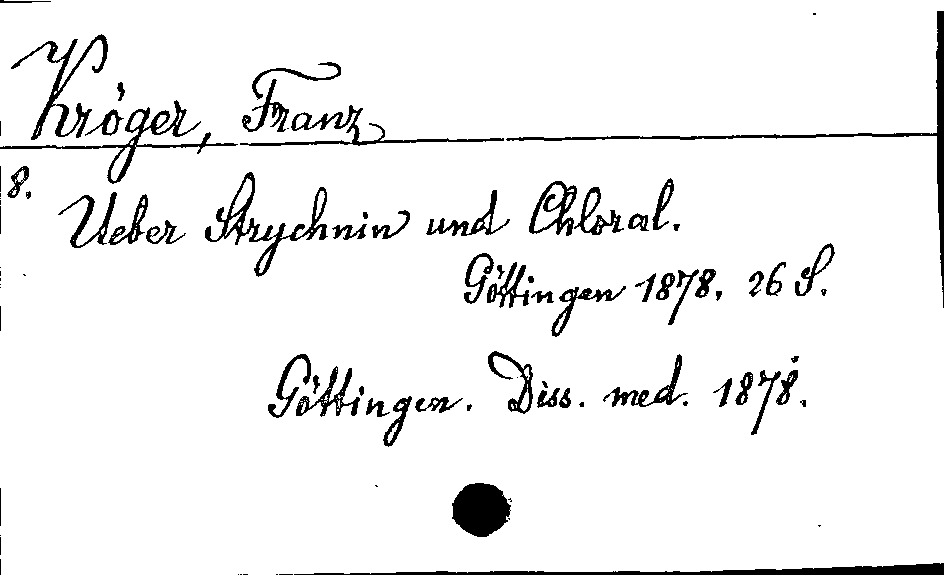 Kröger, Franz
8.
Ueber Strychnin und Chloral.
Göttingen 1878. 26 S.
Göttingen. Diss. med. 1878.